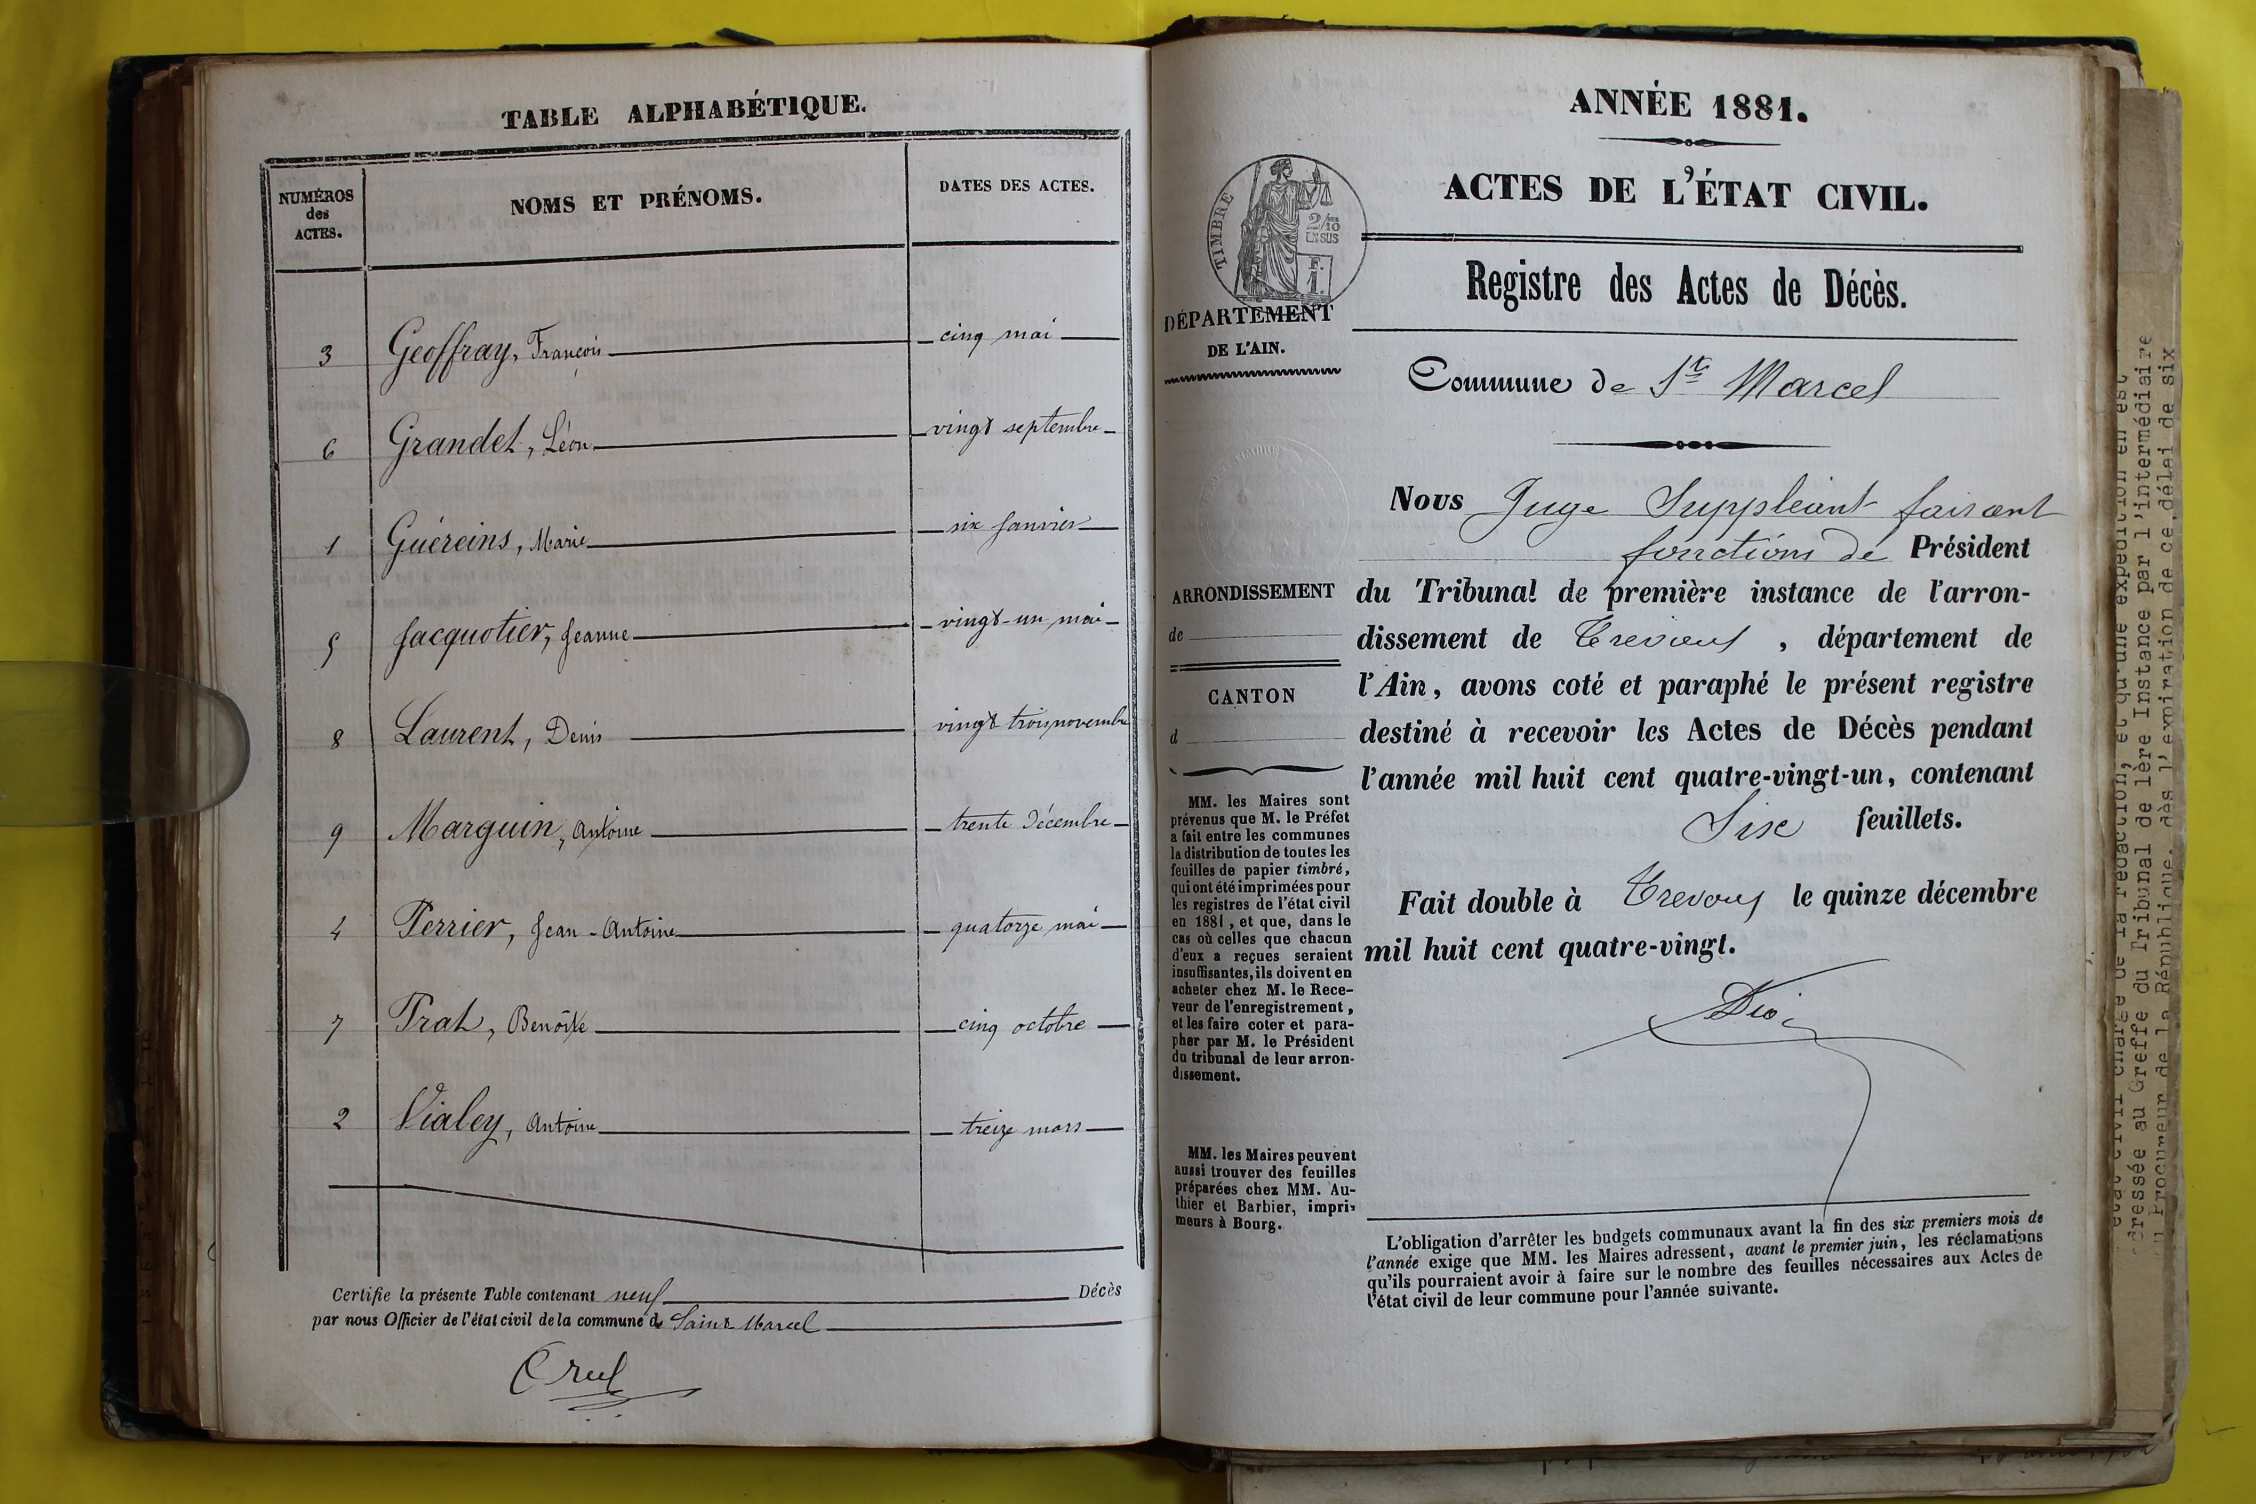 TABLE ALPHABÉTIQUE.
NUMÉROS
des
ACTES.
NOMS ET PRÉNOMS.
DATES DES ACTES.
3 Geoffray, François cinq mai
6 Grandet, Léon vingt septembre
1 Guéreins, Marie six Janvier
5 Jacquotier, Jeanne vingt-un mai
8 Laurent, Denis vingt trois novembre
9 Marguin, Antoine trente Décembre
4 Perrier, Jean-Antoine quatorze mai
7 Prat, Benoîte cinq octobre
2 Vialey, Antoine treize mars
Certifie la présente Table contenant neuf Décès
par nous Officier de l'état civil de la commune de Saint Marcel
ANNÉE 1881.
ACTES DE L'ÉTAT CIVIL.
TIMBRE
2/10
EN SUS
F.
1.
Registre des Actes de Décès.
DÉPARTEMENT
DE L'AIN.
Commune de St Marcel
Nous Juge Suppléant faisant
fonctions de Président
du Tribunal de première instance de l'arron-
dissement de Trevoux, département de
l'Ain, avons coté et paraphé le présent registre
destiné à recevoir les Actes de Décès pendant
l'année mil huit cent quatre-vingt-un, contenant
Six feuillets.
Fait double à Trevoux le quinze décembre
mil huit cent quatre-vingt.
ARRONDISSEMENT
de
CANTON
d
MM. les Maires sont
prévenus que M. le Préfet
a fait entre les communes
la distribution de toutes les
feuilles de papier timbré,
qui ont été imprimées pour
les registres de l'état civil
en 1881, et que, dans le
cas où celles que chacun
d'eux a reçues seraient
insuffisantes, ils doivent en
acheter chez M. le Rece-
veur de l'enregistrement,
et les faire coter et para-
pher par M. le Président
du tribunal de leur arron-
dissement.
MM. les Maires peuvent
aussi trouver des feuilles
préparées chez MM. Au-
thier et Barbier, impri-
meurs à Bourg.
L'obligation d'arrêter les budgets communaux avant la fin des six premiers mois de
l'année exige que MM. les Maires adressent, avant le premier juin, les réclamations
qu'ils pourraient avoir à faire sur le nombre des feuilles nécessaires aux Actes de
l'état civil de leur commune pour l'année suivante.
état civil chargé de la rédaction, et qu'une expédition en est
adressée au Greffe du Tribunal de 1ère Instance par l'intermédiaire
du Procureur de la République, dès l'expiration de ce délai de six